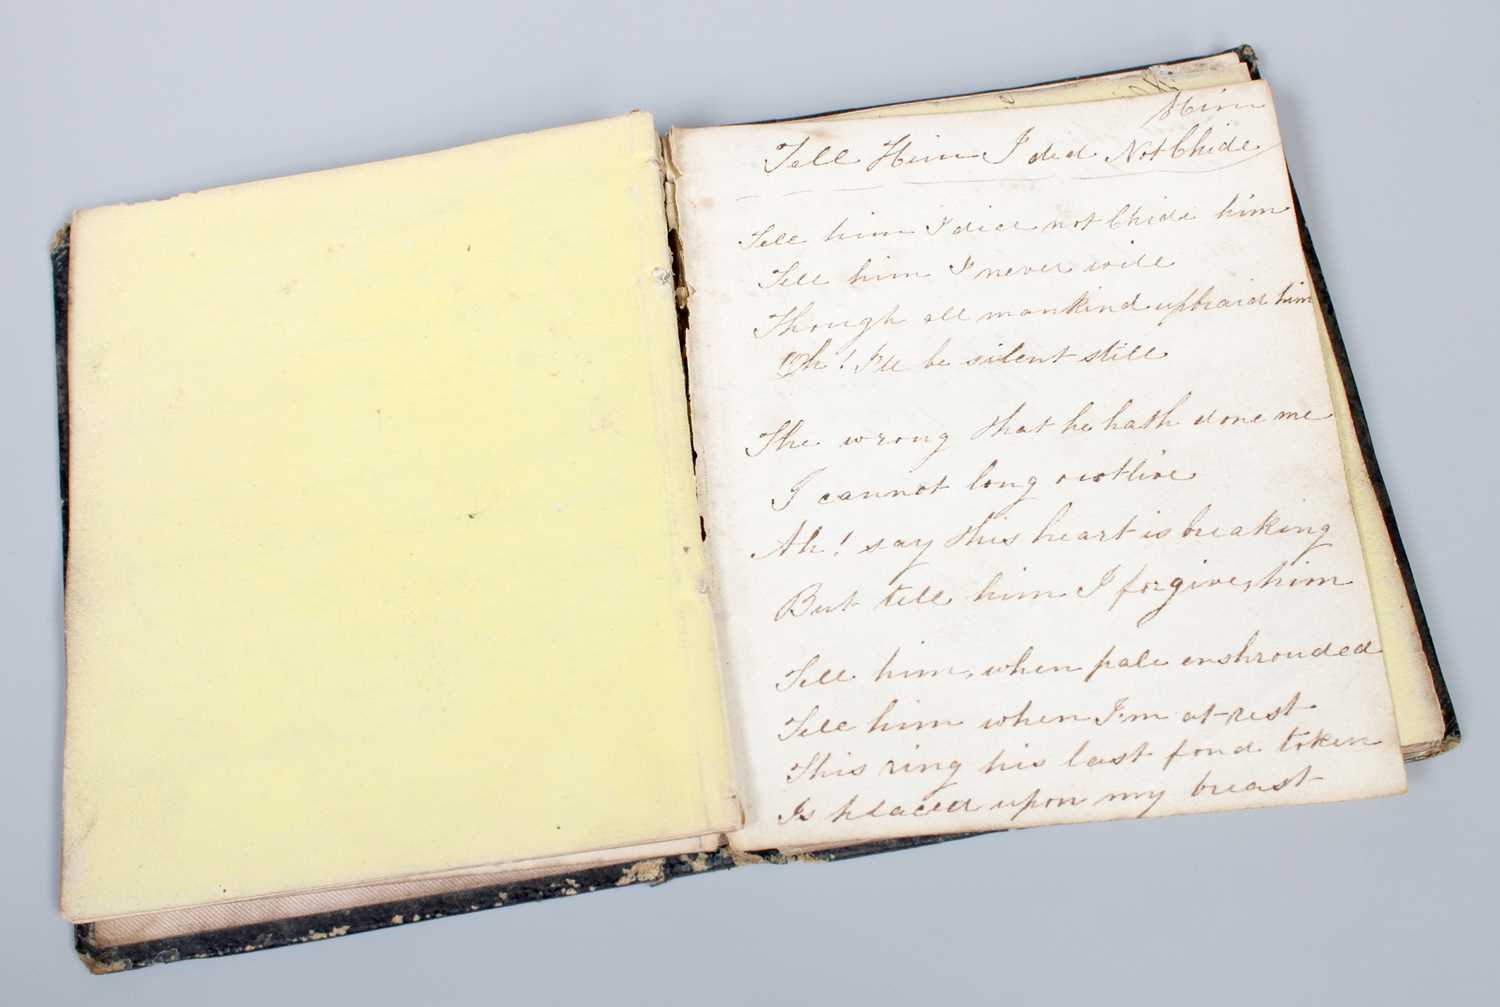 Him
Tell Him I did Not Chide
Tell him I did not Chide him
Tell him I never will
Though all mankind upbraid him
Oh! I'll be silent still
The wrong that he hath done me
I cannot long outlive
Ah! say this heart is breaking
But tell him I forgive, him
Tell him, when pale enshrouded
Tell him when I'm at rest
This ring his last fond token
Is placed upon my breast